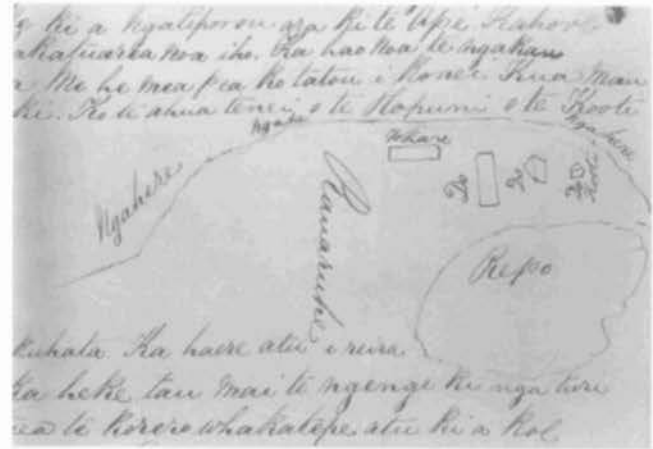 ki a Ngatiporou ara ki te Ope Kahore
noa iho. Ka hao noa te ngakau
Me he mea pea ko tatou i konei. Kua mau
ki. Ko te ahua tenei o te Hopuni o te Kooti
Ngahere
Ngahere
Whare
Ngahere
Do
Do
Do
Kooti
Rauaruhe
Repo
Ka haere atu i reira.
Ka heke tau mai te ngenge ki nga turi
te korero whakatepe atu ki a koe